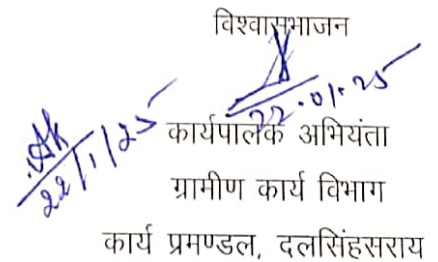 विश्वासभाजन
22.01.25
22/1/25
कार्यपालक अभियंता
ग्रामीण कार्य विभाग
कार्य प्रमण्डल, दलसिंहसराय